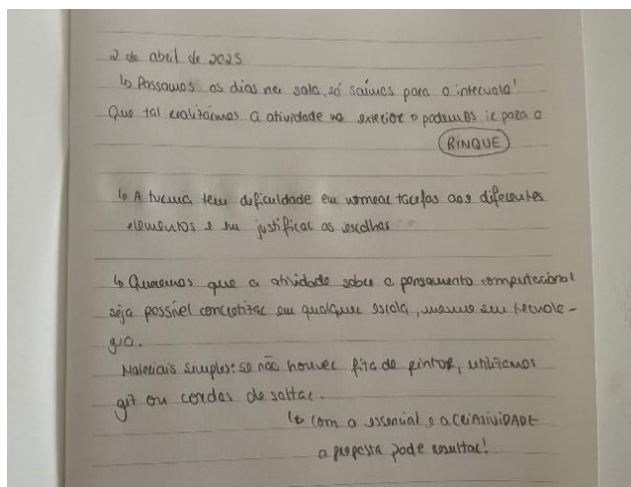 2 de abril de 2025
↳ Passamos os dias na sala, só saímos para o intervalo!
Que tal realizarmos a atividade no exterior e podemos ir para o
RINQUE
↳ A turma tem dificuldade em nomear tarefas aos diferentes
elementos e em justificar as escolhas
↳ Queremos que a atividade sobre o pensamento computacional
seja possível concretizar em qualquer escola, mesmo sem tecnolo-
gia.
Materiais simples: se não houver fita de pintor, utilizamos
giz ou cordas de saltar.
↳ com o essencial e a CRiAtiViDADE
a proposta pode resultar!